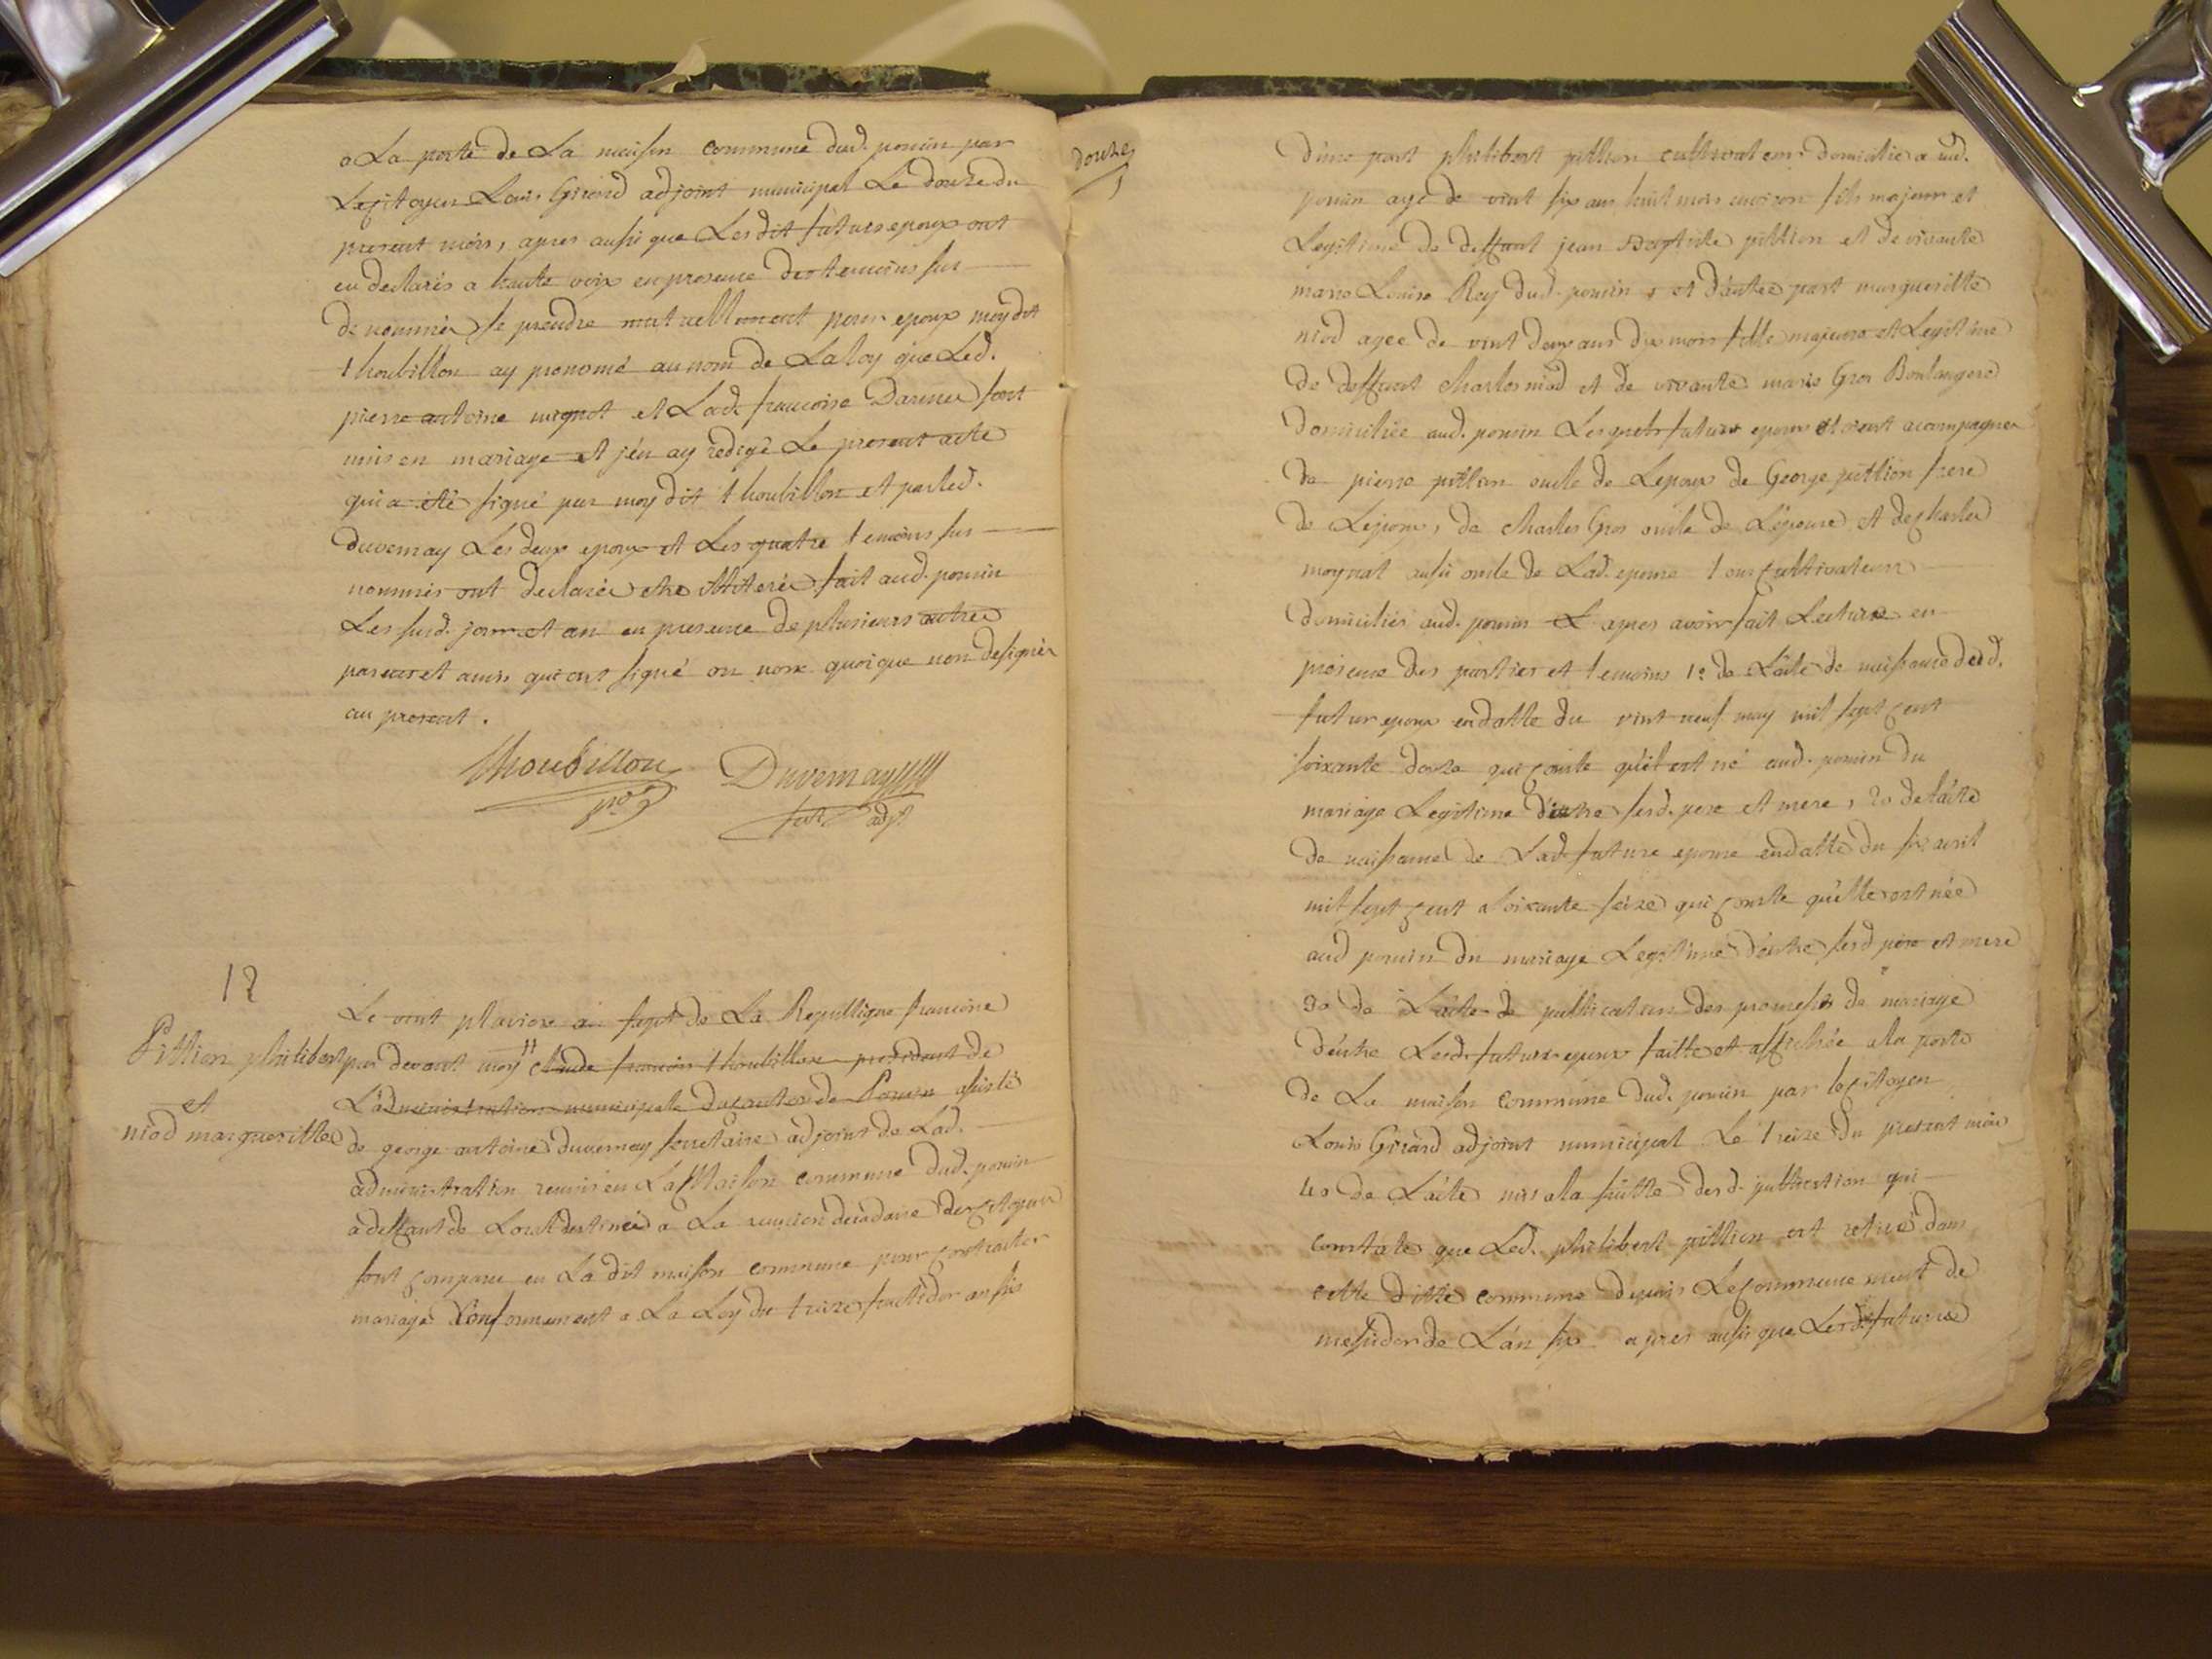 a La porte de La maison commune dud. poncin par
Le citoyen Louis Girard adjoint municipal Le douze du
present mois, apres aussi que Lesdit futurs epoux ont
eu declarés a haute voix en presence des temoins sus
denommés se prendre mutuellement pour epoux moy dit
thoubillon ay prononcé au nom de La loy que Led.
pierre antoine mignot et Lad. francoise Darmet sont
unis en mariage et j'en ay redigé Le present acte
qui a été signé par moy dit thoubillon et par led.
duvernay Les deux epoux et Les quatre temoins sus
nommés ont declarés etre illiterés fait aud. poncin
Les susd. jour et an en presence de plusieurs autres
parents et amis qui ont signé ou non quoique non designés
au present.
Thoubillon
pr.
Duvernay
adjt
12
Pittion philibert
et
niod margueritte
Le vint pluviose an sept de La Republique francoise
par devant moy Claude francois thoubillon president de
L'administration municipale du canton de Poncin assisté
de george antoine duvernay secretaire adjoint de Lad.
administration reunis en La Maison commune dud. poncin
a deffaut de Local destinée a La reunion decadaire des citoyens
sont comparu en La dit maison commune pour contracter
mariage Conformement a La Loy du treize fructidor an six
douze
D'une part philibert pittion cultivateur domicilié a aud.
poncin agé de vint six ans huit mois environ fils majeur et
Legitime de deffunt jean Baptiste pittion et de vivante
marie Louise Rey dud. poncin, et d'autre part margueritte
niod agee de vint deux ans dix mois fille majeure et Legitime
de deffunt charles niod et de vivante marie Gros Boulangere
Domiciliée aud. poncin Lesquels futurs epoux etoient acompagnés
de pierre pittion oncle de Lepoux de George pittion frere
de L'epoux, de charles Gros oncle de L'épouse et de charles
moynat aussi oncle de Lad. epouse tous cultivateurs
domiciliés aud. poncin Et apres avoir fait Lecture en
présence des parties et temoins 1o de L'acte de naissance dud.
futur epoux en datte du vint neuf may mil sept cent
soixante douze qui conste qu'il est né aud. poncin du
mariage Legitime d'entre sesd. pere et mere, 2o de L'acte
de naissance de Lad. future epouse en datte du six avril
mil sept cent soixante seize qui conste qu'elle est née
aud poncin du mariage Legitime d'entre sesd père et mere
3o de L'acte de publication des promesses de mariage
d'entre Lesd. futurs epoux faitte et affichée a la porte
de La maison commune dud. poncin par le citoyen
Louis Girard adjoint municipal Le treize du present mois
4o de L'acte mis a la suitte desd. publication qui
constate que Led. philibert pittion est retiré dans
cette ditte commune depuis Le commencement de
messidor de L'an six apres aussi que Lesd. futures